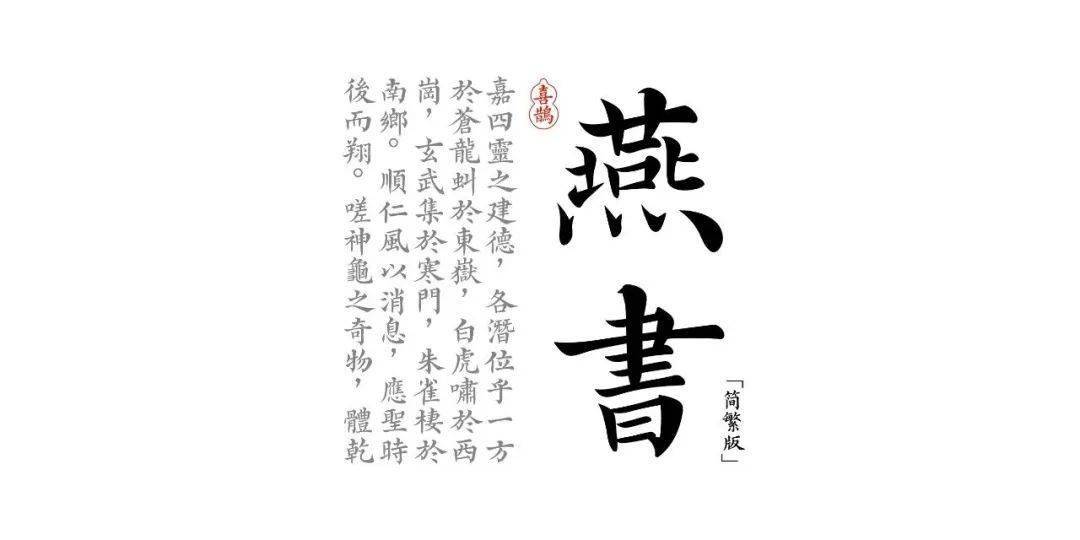 燕書
「简繁版」
喜鹊
嘉四靈之建德，各潛位乎一方
於蒼龍虯於東嶽，白虎嘯於西
崗，玄武集於寒門，朱雀棲於
南鄉。順仁風以消息，應聖時
後而翔。嗟神龜之奇物，體乾